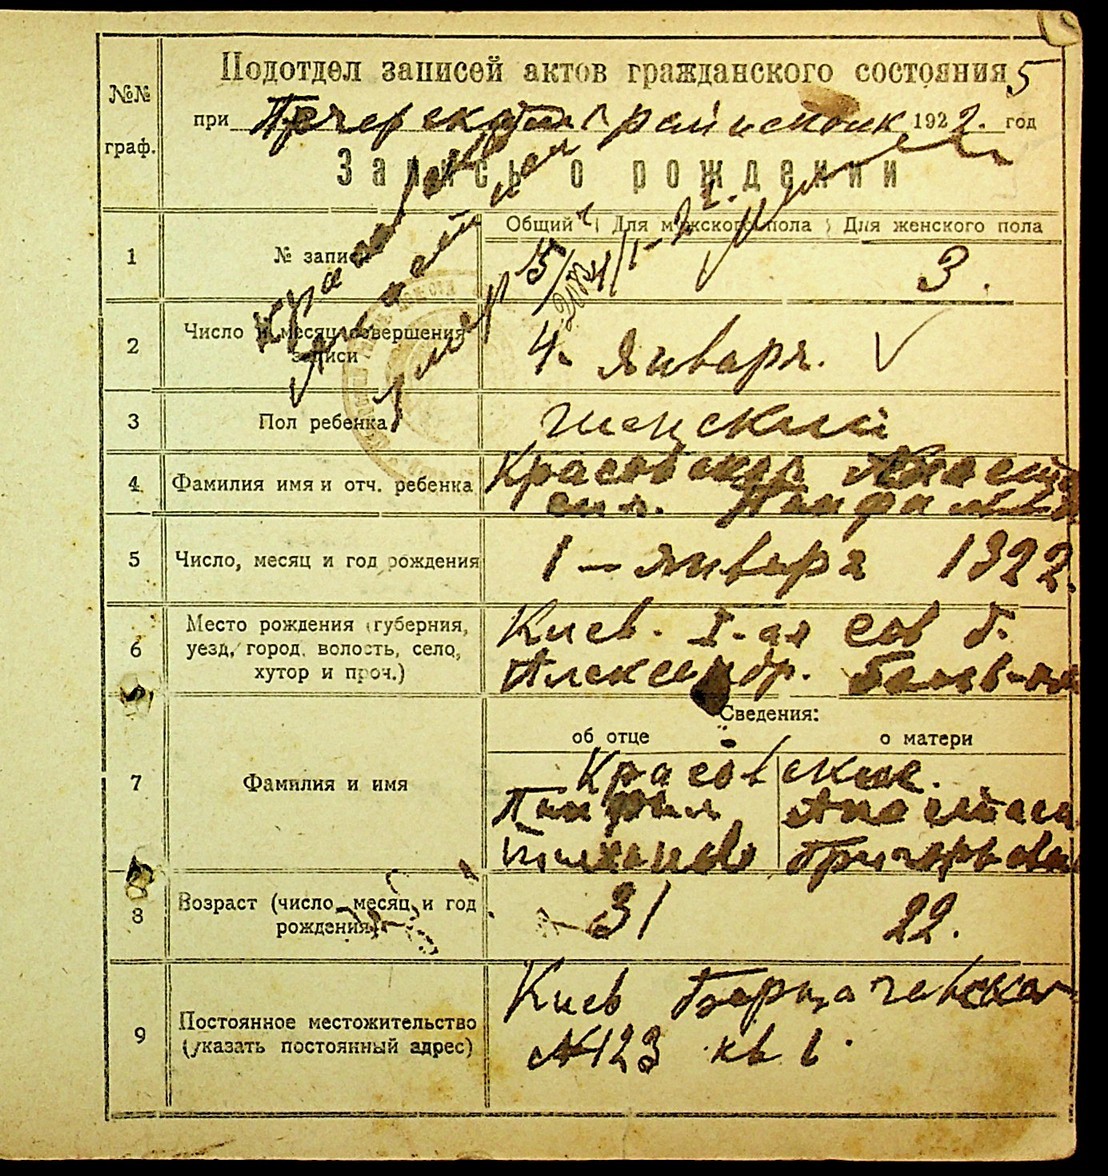 Подотдел записей актов гражданского состояния 5
при Печерском райисполк 1922. год
Запись о рождении
№№ граф.
Общий Для мужского пола Для женского пола
1 № записи 5/ 3.
2 Число и месяц совершения записи 4. Января.
3 Пол ребенка женский
4 Фамилия имя и отч. ребенка Красовская Анаста
сия. Панфиловна
5 Число, месяц и год рождения 1 – января 1922.
6 Место рождения (губерния, Киев. I-ая сов б.
уезд, город, волость, село, Александр. больн-ца
хутор и проч.)
Сведения:
об отце о матери
7 Фамилия и имя Красовские.
Панфил Анастаси
Тихонов Григорьевна
8 Возраст (число, месяц и год рождения) 31 22.
9 Постоянное местожительство Киев
(указать постоянный адрес) №123 кв 1.